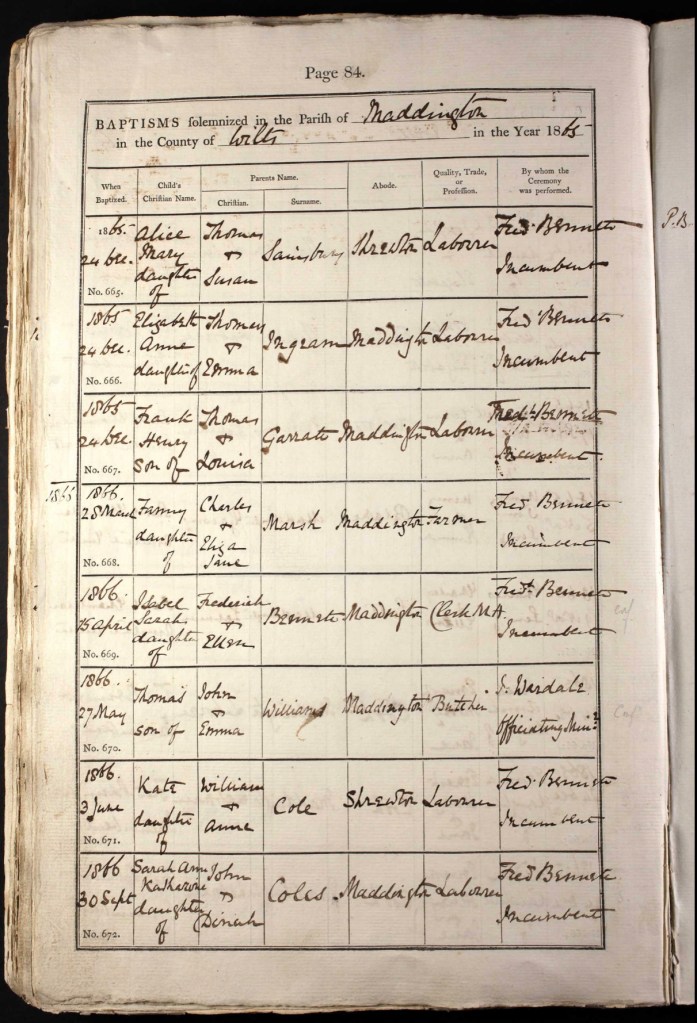 Page 84.
BAPTISMS solemnized in the Parish of Maddington
in the County of Wilts in the Year 1865
When Baptized. Child's Christian Name. Parents Name. Christian. Surname. Abode. Quality, Trade, or Profession. By whom the Ceremony was performed.
1865. 24 Dec. No. 665. Alice Mary daughter of Thomas + Susan Sainsbury Shrewton Labourer Fred. Bennett Incumbent
1865 24 Dec. No. 666. Elizabeth Anne daughter of Thomas + Emma Ingram Maddington Labourer Fred. Bennett Incumbent
1865 24 Dec No. 667. Frank Henry son of Thomas + Louisa Garratt Maddington Labourer Fredk. Bennett Incumbent.
1865
1866. 28 March No. 668. Fanny daughter of Charles + Eliza Jane Marsh Maddington Farmer Fred. Bennett Incumbent
1866. 15 April No. 669. Isabel Sarah daughter of Frederick + Ellen Bennett Maddington Clerk M A Fredk. Bennett Incumbent
1866. 27 May No. 670. Thomas son of John + Emma Williams Maddington Butcher Officiating Minr.
1866. 3 June No. 671. Kate daughter of William + Anne Cole Shrewton Labourer Fred. Bennett Incumbent
1866 30 Sept No. 672. Sarah Ann Katharine daughter of John + Dinah Coles Maddington Labourer Fred Bennett Incumbent
P.B